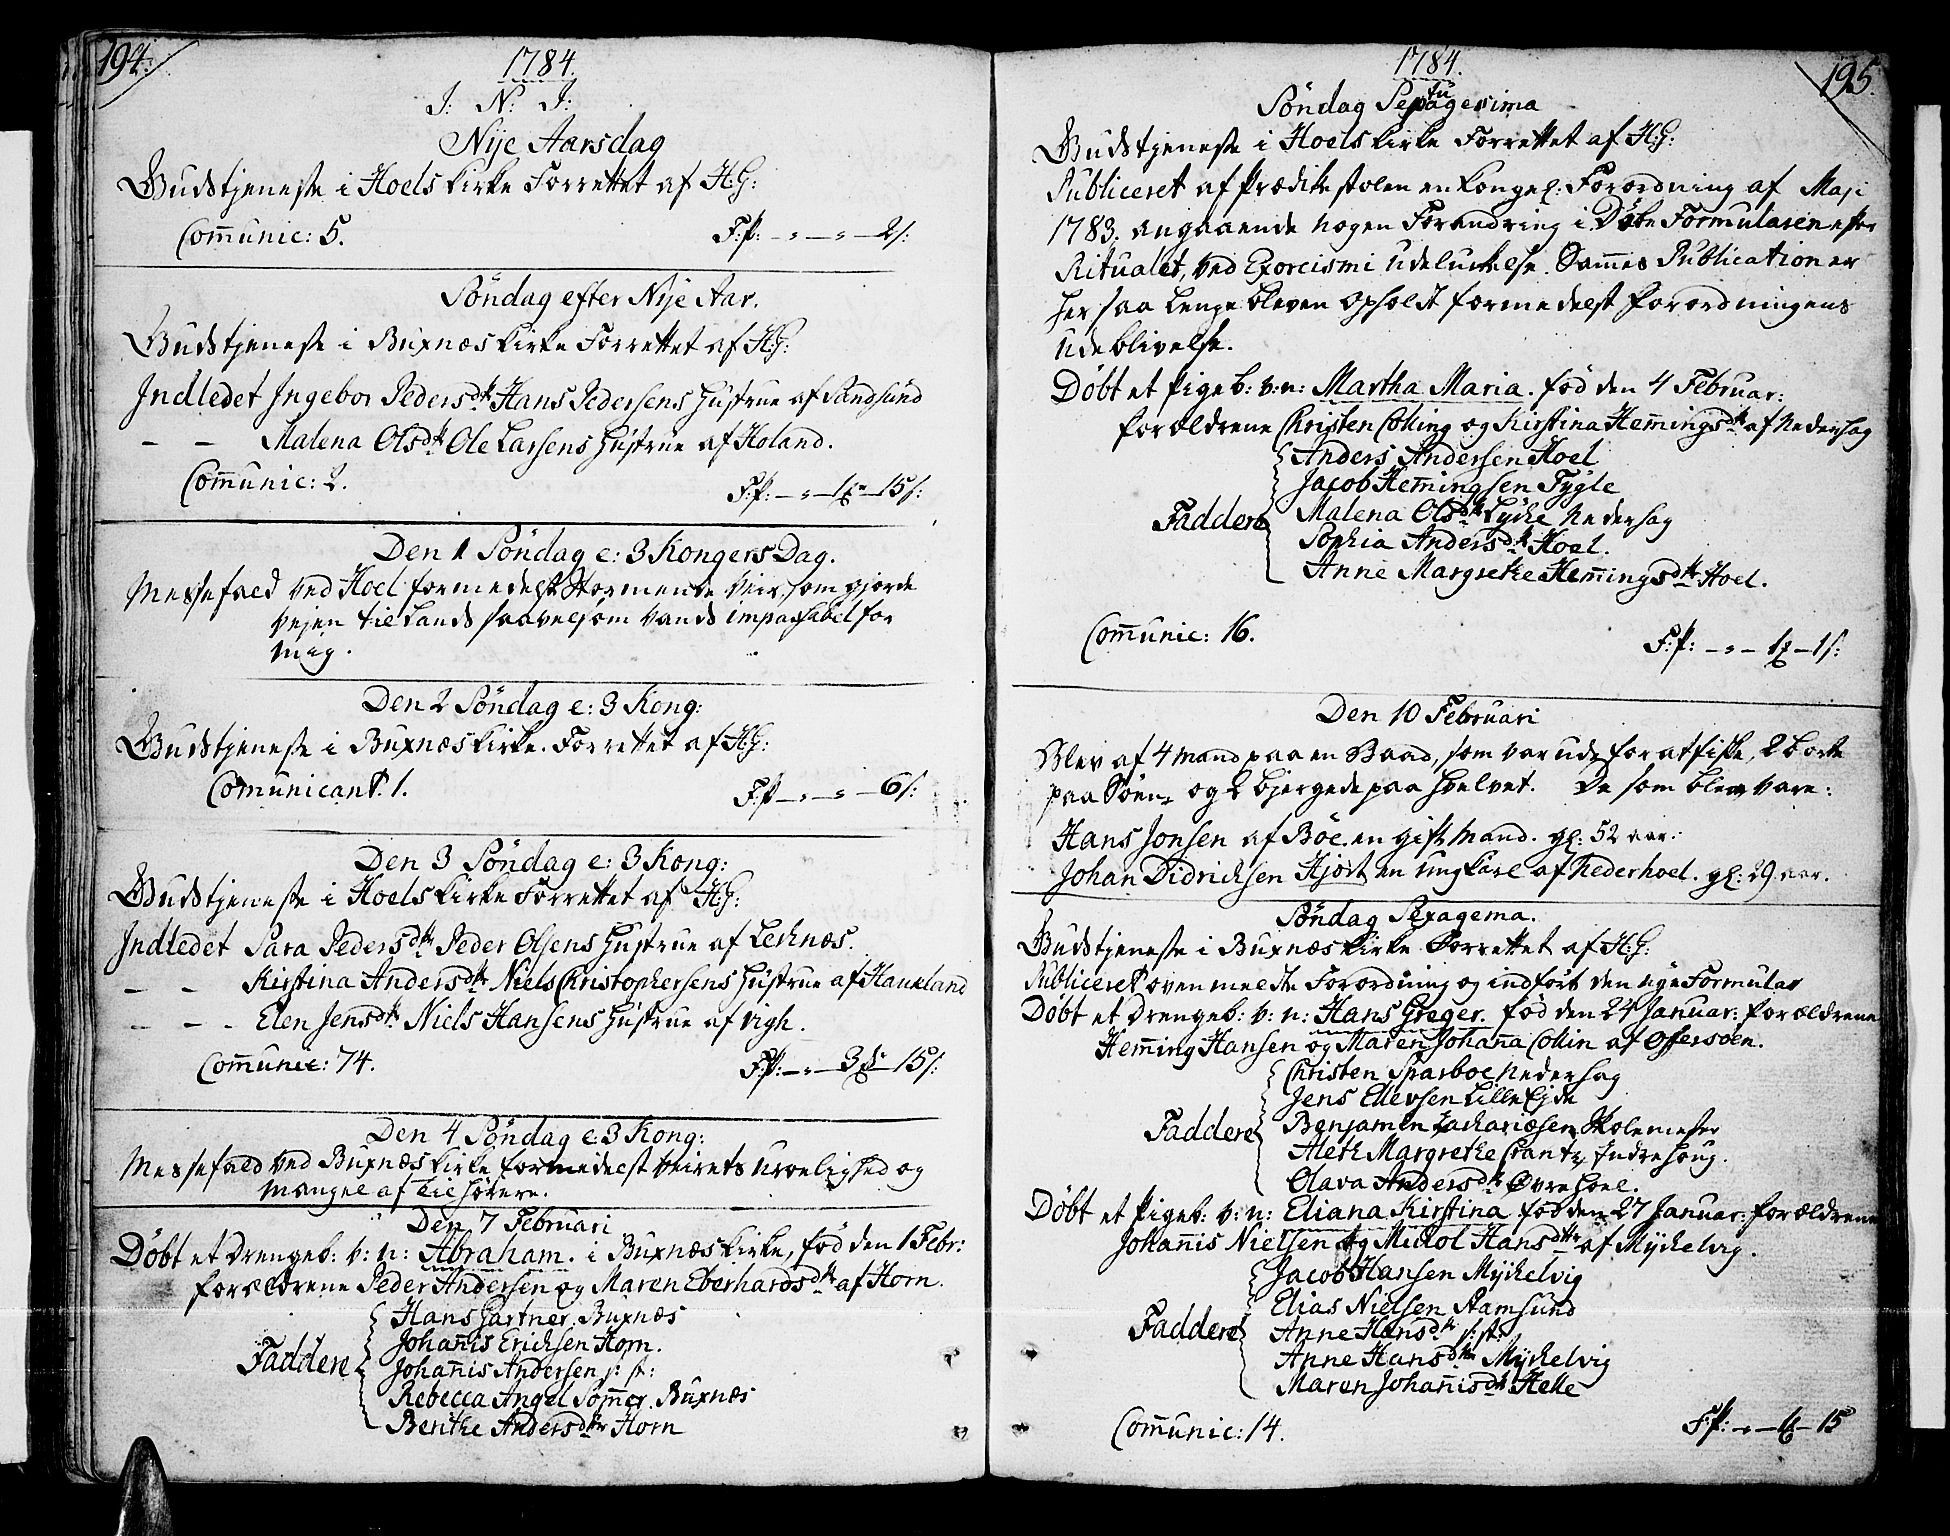 194.
1784.
J: N: J:
Nÿe Aarsdag
Gudstjeneste i Hoels Kirke Forrettet af H:G:
Com̅unic: 5. F:P: – „ – „ – 2s:
Söndag efter Nÿe Aar.
Gudstjeneste i Buxnæs Kirke Forrettet af H:G:
Indledet Ingebor Pedersdtr Hans Pedersens Hustrue af Sandsund
– – Malena Olsdtr Ole Larsens Hustrue af Holand.
Com̅unic: 2. F:P: – „ – 1 – 15s:
Den 1 Söndag e: 3 Kongers Dag.
Messefald ved Hoel formedelst Stormende Veir, som gjorde
Vejen til Lands saavelsom Vands impassabel for
mig.
Den 2 Söndag e: 3 Kong:
Gudstjeneste i Buxnæs Kirke. Forrettet af H:G:
Comunicant. 1. F:P – „ – „ – 6s:
Den 3 Söndag e: 3 Kong:
Gudstjeneste i Hoels Kirke Forrettet af H:G:
Indledet Sara Pedersdtr Peder Olsens Hustrue af Leknæs.
– – Kirstina Andersdtr Niels Christophersens Hustrue af Haukland
– – – Elen Jensdtr Niels Hansens Hustrue af Vigh.
Com̅unic: 74. F:P: – „ – 3 – 15s:
Den 4 Söndag e: 3 Kong:
Messefald ved Buxnæs Kirke formedelst Veirets Uroelighed og
Mangel af Tilhörere.
Den 7 Februari
Döbt et Drengeb: v: n: Abraham. i Buxnæs Kirke, fød den 1 Febr:
Forældrene Peder Andersen og Maren Eberhardsdtr af Horn.
Faddere
Hans Gartner. Buxnæs
Johan̅is Ericksen Horn.
Johan̅is Andersen s: st:
Rebecca Angel Som̅er. Buxnæs
Berithe Andersdtr Horn
195.
1784.
Söndag Septuagesima
Gudstjeneste i Hoels Kirke Forrettet af H:G:
Publiceret af Prædikestolen en Kongel: Forordning af Maji
1783. angaaende nogen Forandring i Döbe Formularen efter
Ritualet, ved Exorcismi Udeluckelse. Sam̅es Publication er
her saa lenge bleven Opholdt formedelst Forordningens
Udeblivelse.
Döbt et Pigeb: v: n: Martha Maria. fød den 4 Februar:
Forældrene Christen Colling og Kirstina Hem̅ingsdtr af Nedershag
Faddere
Anders Andersen Hoel
Jacob Hem̅ingsen Fygle
Malena Olsdtr Lÿcke Nedershag
Sophia Andersdtr Hoel.
Anne Margrethe Hem̅ingsdtr Hoel.
Com̅unic: 16. F:P: – „ – 1 – 1s:
Den 10 Februari
Blev af 4 Mand paa en Baad, som var ude for at fiske, 2 borte
paa Søen, og 2 bjergede paa Hvelvet. De som blev vare:
Hans Jonsen af Böe en gift Mand. gl: 52 aar:
Johan Didricksen Hjort en Ungkarl af Nederhoel. gl: 29 aar.
Söndag Sexagema.
Gudstjeneste i Buxnæs Kirke Forrettet af H:G:
Publiceret ovenmeldte Forordning og indført den nye Formular
Döbt et Drengeb: v: n: Hans Greger. fød den 24 Januar: Forældrene
Hem̅ing Hansen og Maren Johan̅a Collin af Offersöen.
Faddere
Christen Sparboe Nedershag
Jens Ellevsen Lille Ejde
Benjamin Zachariæsen Skolemester
Aleth Margrethe Crantz Indrehoug.
Olava Andersdtr Øvrehoel.
Döbt et Pigeb: v: n: Eliana Kirstina fød den 27 Januar: Forældrene
Johan̅is Nielsen og Mickol Hansdtr af Mÿckelvig.
Faddere
Jacob Hansen Mÿckelvig
Elias Nielsen Stamsund
Anne Hansdtr s: st:
Anne Hansdtr Mÿckelvig
Maren Johan̅isdtr Helle
Com̅unic: 14. F:P: – „ – 1 – 15